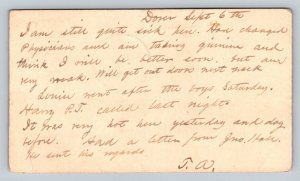 Dover Sept 6th
I am still quite sick here. Have changed
Physicians and am taking quinine and
think I will be better soon. but am
very weak. Will get out down next week
Louise went after the boys Saturday.
Harry P.T. called last night
It was very hot here yesterday and day
before. Had a letter from Jno. Hahn.
He sent his regards
T. A.